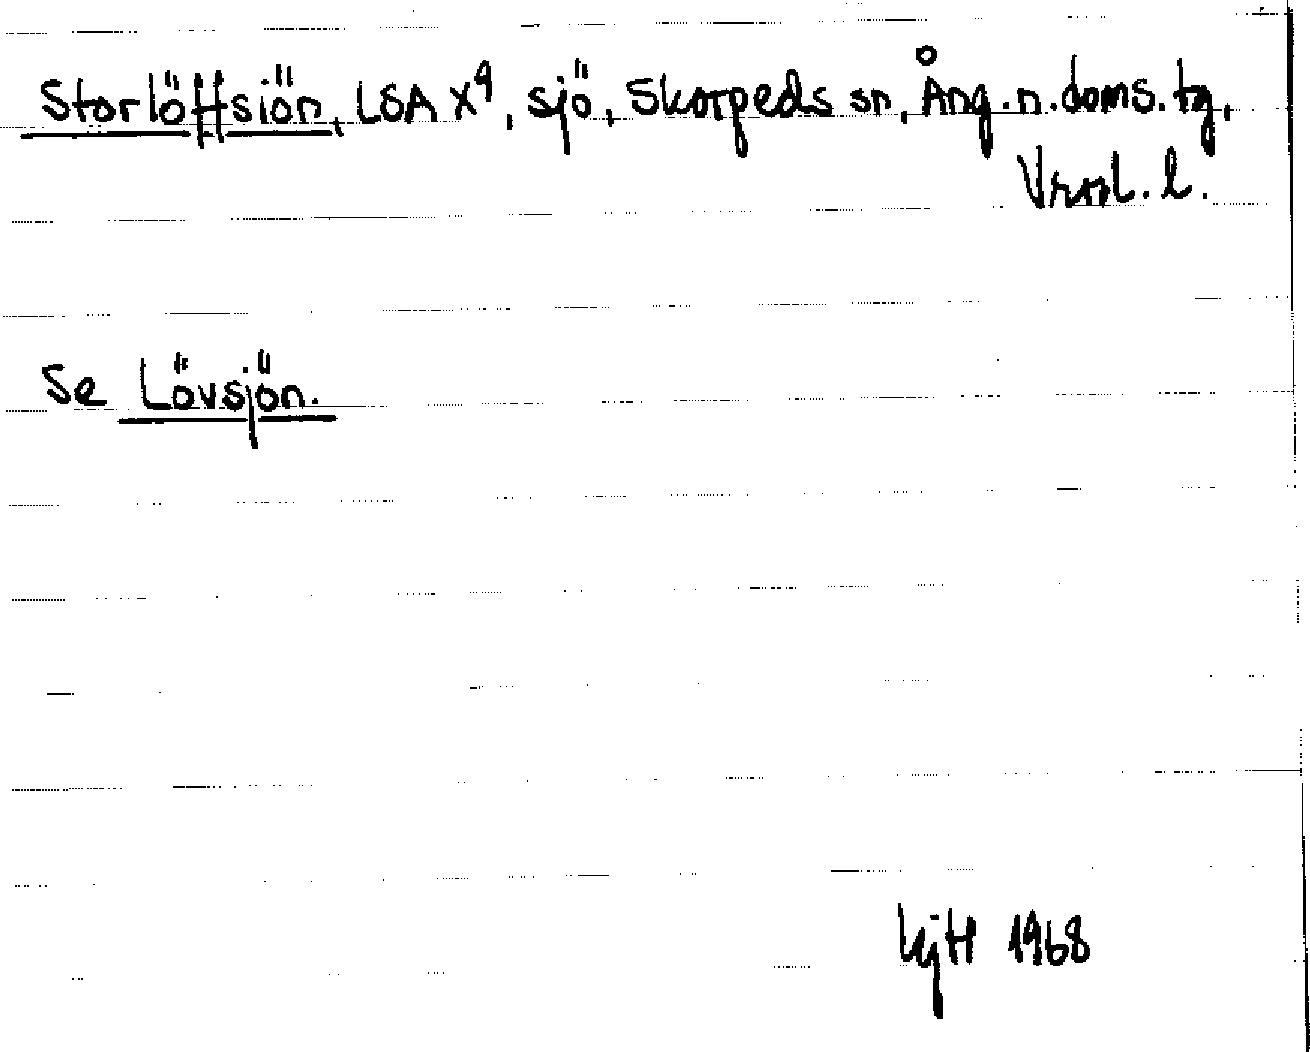 Storlöffsiön, LSA X⁹, sjö, Skorpeds sn, Ång. n. doms. tg,
Vrnl. l.
Se Lövsjön.
KjH 1968